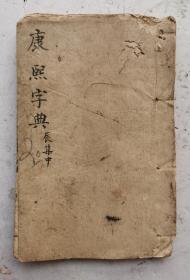 康熙字典
辰集中